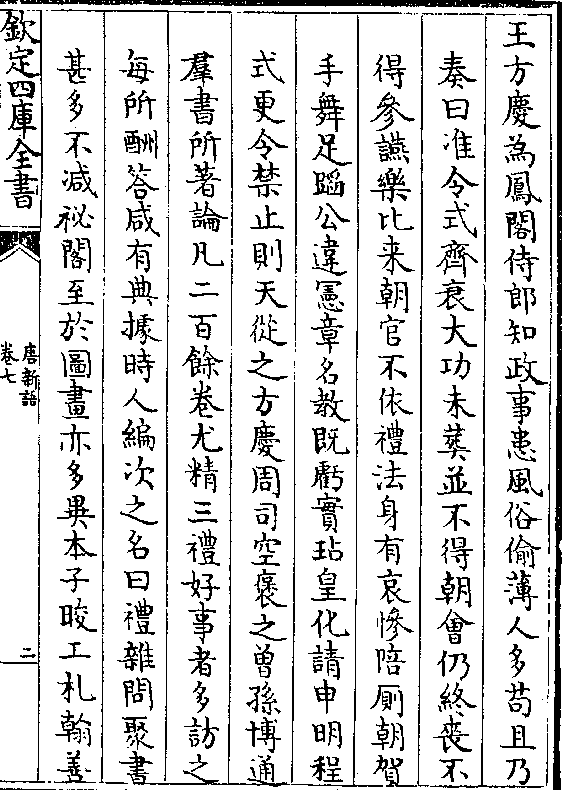 王方慶為鳳閣侍郎知政事患風俗偷薄人多苟且乃
奏曰准令式齊衰大功未葬並不得朝會仍終喪不
得參讌樂比来朝官不依禮法身有哀慘陪厠朝賀
手舞足蹈公違憲章名教既虧實玷皇化請申明程
式更令禁止則天從之方慶周司空褒之曽孫博通
羣書所著論凡二百餘卷尤精三禮好事者多訪之
每所酬答咸有典據時人編次之名曰禮雜問聚書
甚多不減祕閣至於圖畫亦多異本子晙工札翰善
欽定四庫全書
唐新語
卷七
二